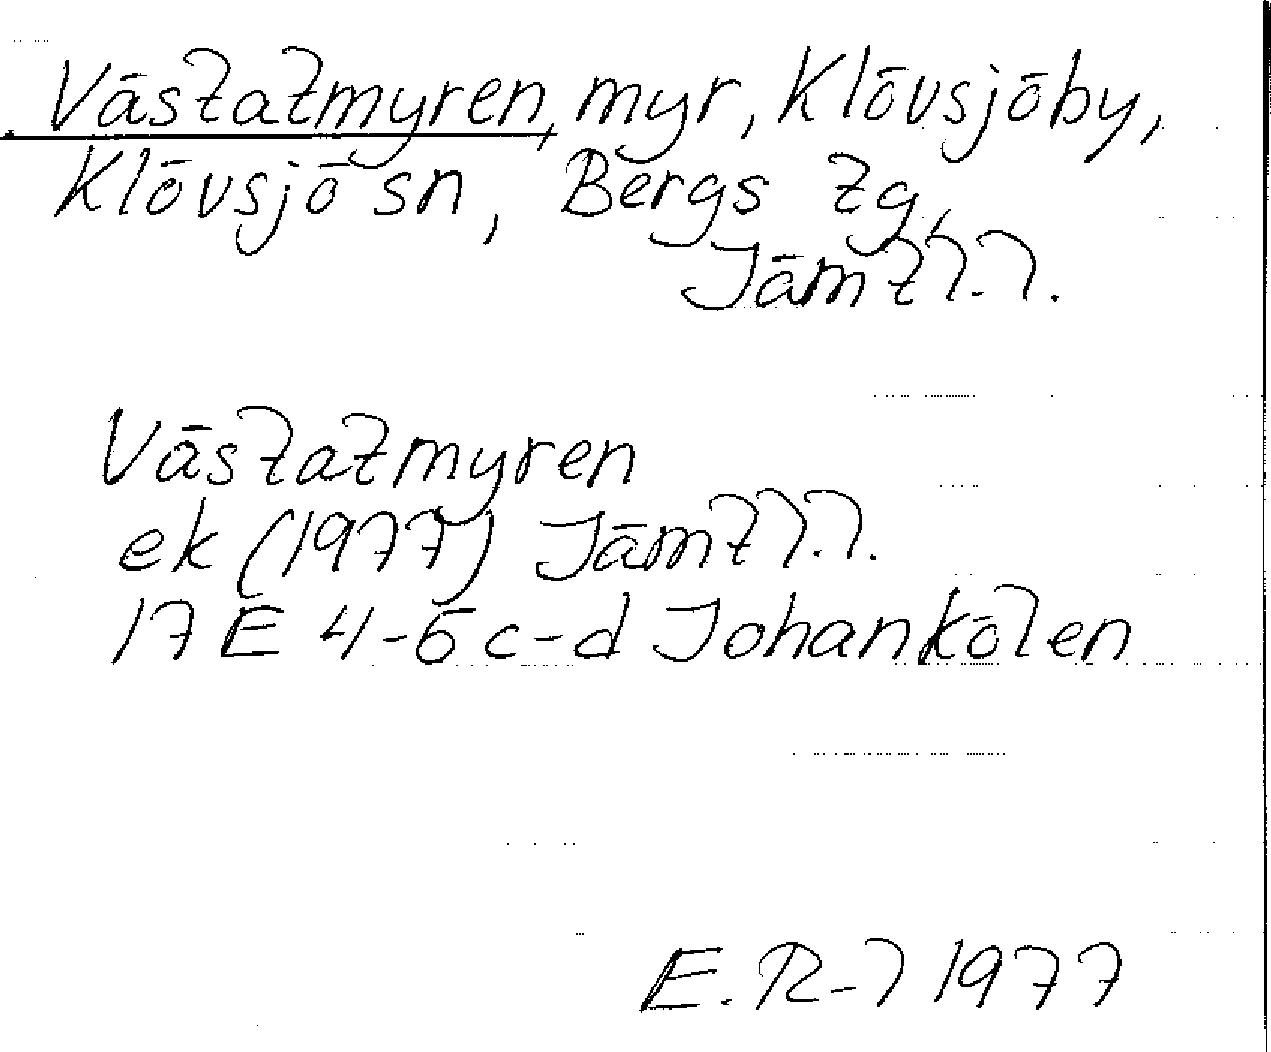 Västatmyren, myr, Klövsjöby,
Klövsjö sn, Bergs tg,
Jämtl.l.
Västatmyren
ek (1977) Jämtl.l.
17E 4-5 c-d Johankölen
E.R-l 1977